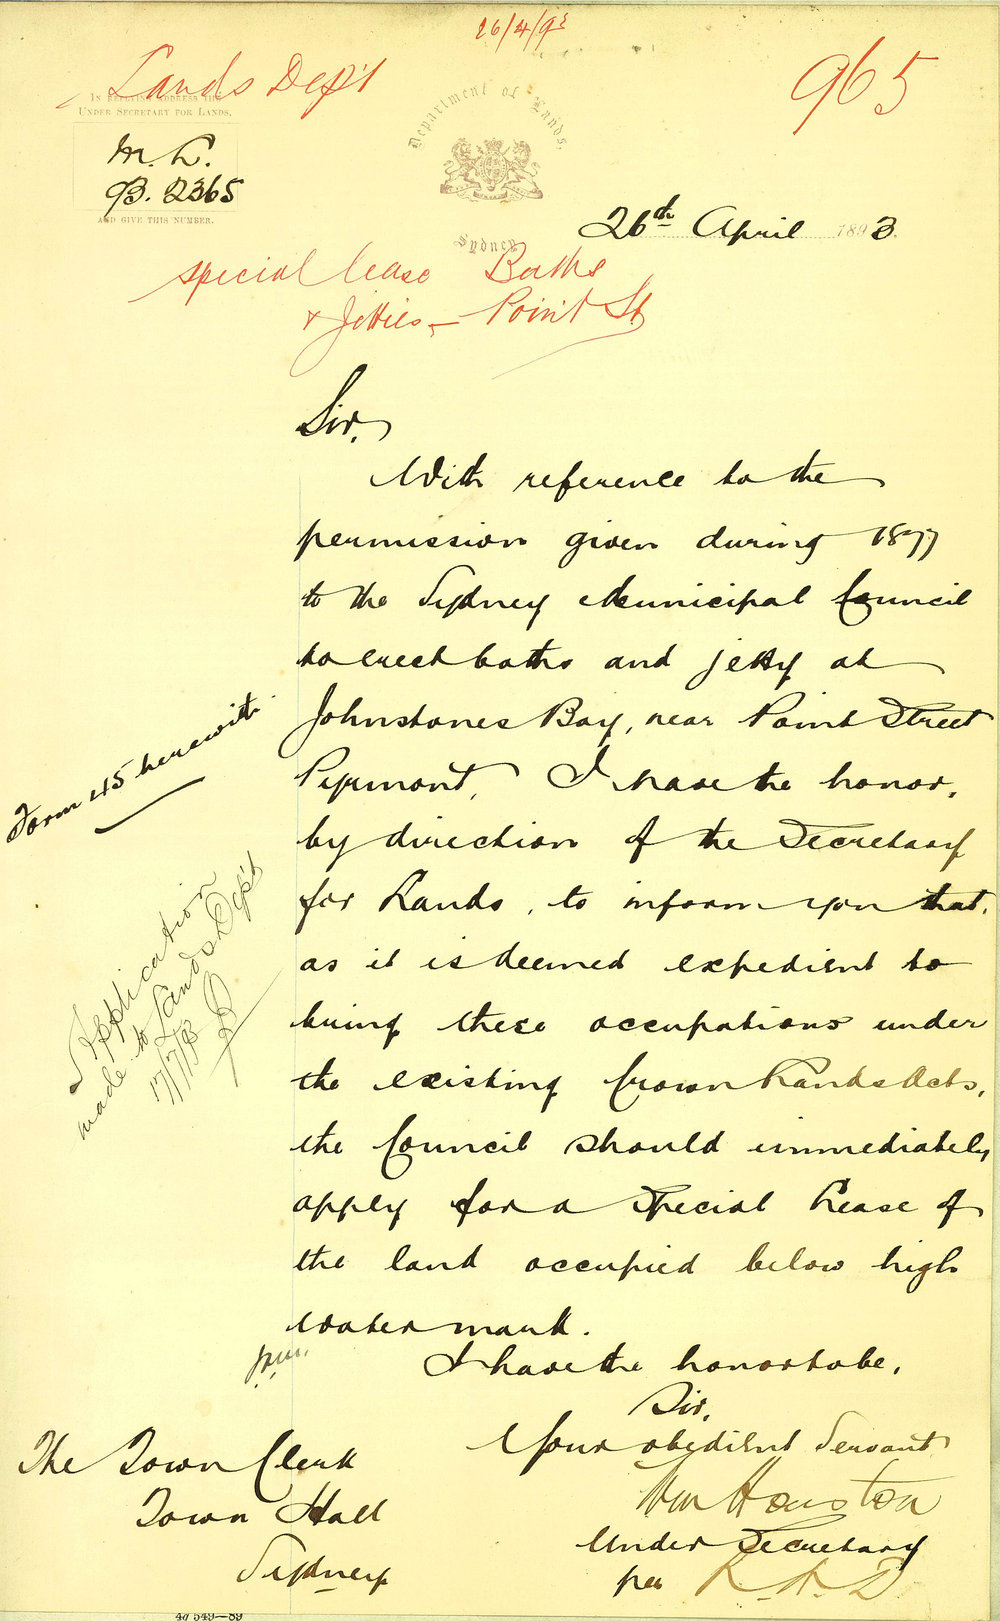 26/4/93
Lands Dep't
965
IN REPLYING ADDRESS THE
UNDER SECRETARY FOR LANDS,
M. L.
93. 2365
AND GIVE THIS NUMBER.
Department of Lands,
Sydney
26th April 1893.
Special lease Baths
& Jetties - Point St
Sir,
With reference to the
permission given during 1877
to the Sydney Municipal Council
to erect baths and jetty at
Johnstones Bay, near Point Street
Pyrmont, I have the honor,
by direction of the Secretary
for Lands, to inform you that,
as it is deemed expedient to
bring these occupations under
the existing Crown Lands Acts,
the Council should immediately
apply for a Special Lease of
the land occupied below high
water mark.
I have the honor to be,
Sir,
Your obedient Servant
Wm Houston
Under Secretary
per
Form 45 herewith.
Application
made to Lands Dep't
17/7/93
The Town Clerk
Town Hall
Sydney
4d 549—89